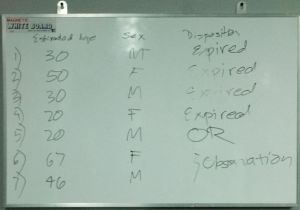 MAGNETIC
WHITE BOARD
Estimated Age Sex Disposition
1) 30 M Expired
2) 50 F Expired
3) 30 M Expired
4) 20 F Expired
5) 20 M OR
6) 67 F } Observation
7) 46 M